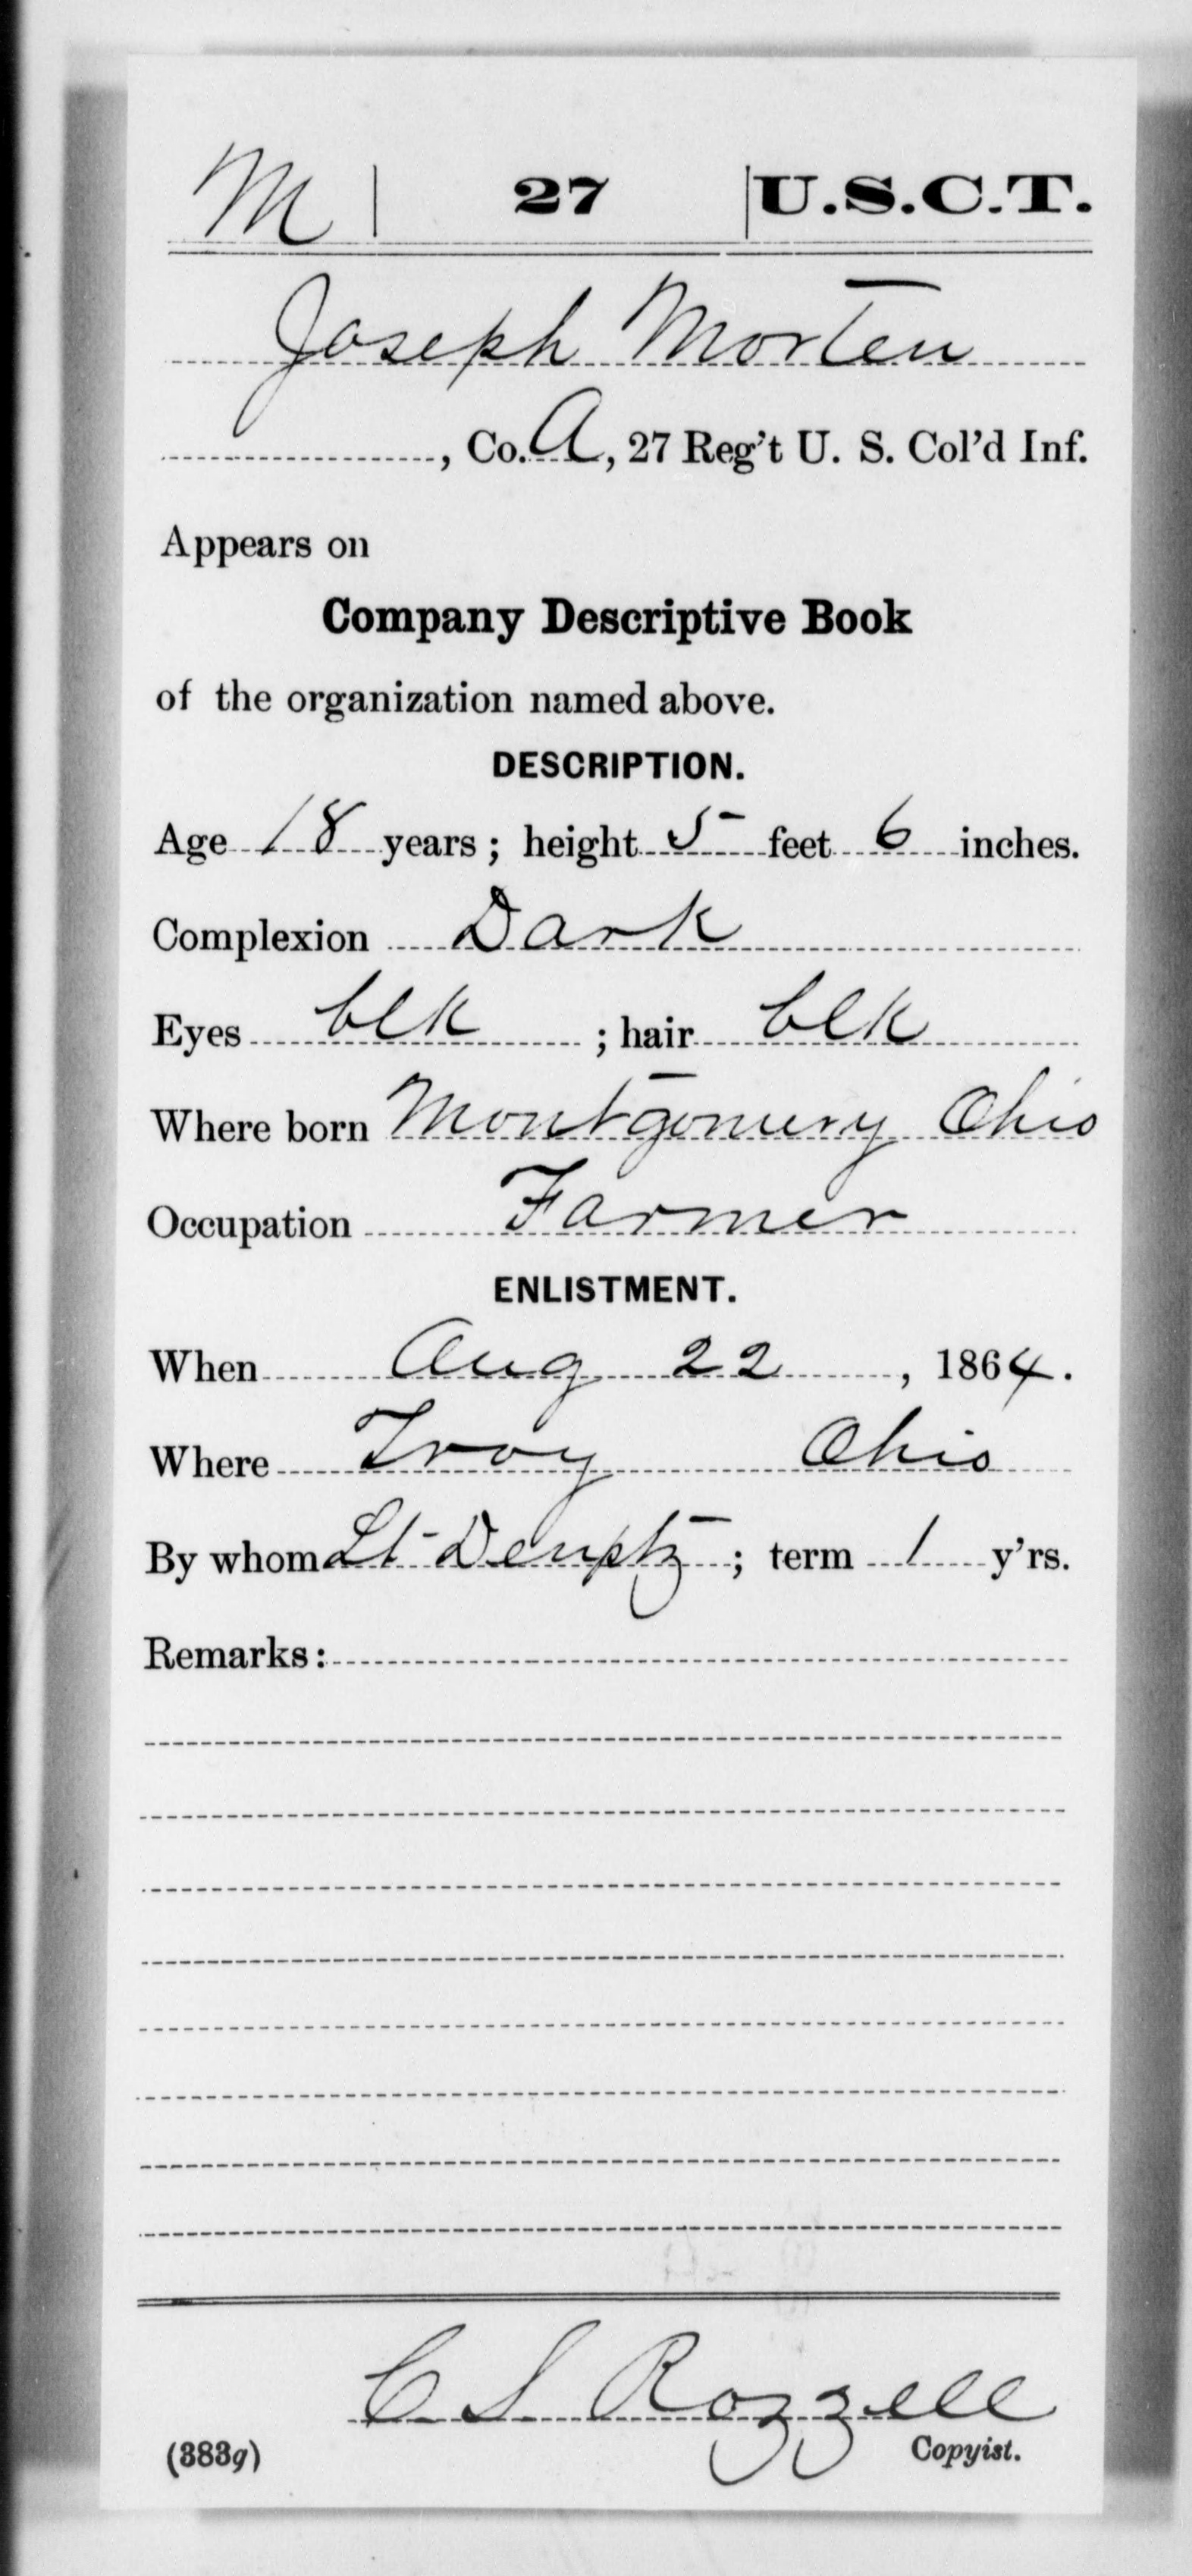 M | 27 | U.S.C.T.
Joseph Morten
, Co. A, 27 Reg't U. S. Col'd Inf.
Appears on
Company Descriptive Book
of the organization named above.
DESCRIPTION.
Age 18 years; height 5 feet 6 inches.
Complexion Dark
Eyes blk ; hair blk
Where born Montgomery Ohio
Occupation Farmer
ENLISTMENT.
When Aug 22, 1864.
Where Troy Ohio
By whom Lt ; term 1 y'rs.
Remarks:
C S Rozzell
(383g) Copyist.